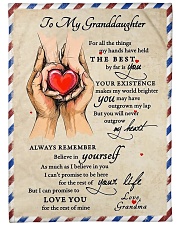 To My Granddaughter
For all the things
my hands have held
THE BEST
by far is you
YOUR EXISTENCE
makes my world brighter
YOU may have
outgrown my lap
But you will never
outgrow
my heart
ALWAYS REMEMBER
Believe in yourself
As much as I believe in you
I can't promise to be here
for the rest of your life
But I can promise to
LOVE YOU
for the rest of mine
Love,
Grandma